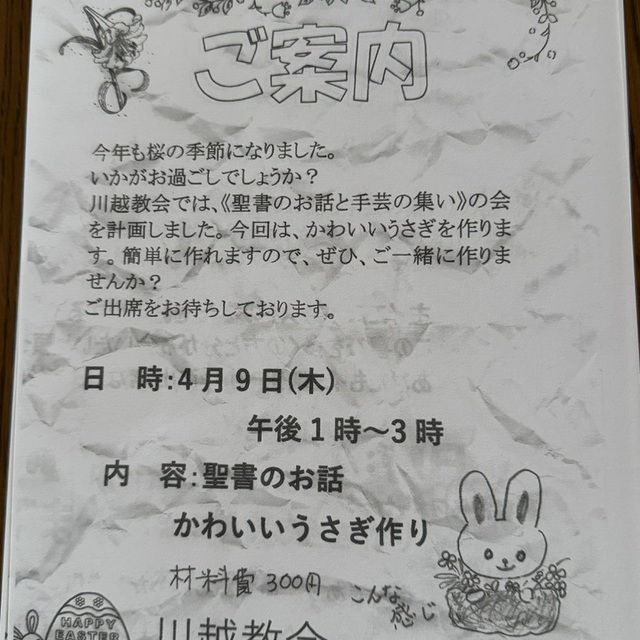 ご案内
今年も桜の季節になりました。
いかがお過ごしでしょうか？
川越教会では、《聖書のお話と手芸の集い》の会
を計画しました。今回は、かわいいうさぎを作りま
す。簡単に作れますので、ぜひ、ご一緒に作りま
せんか？
ご出席をお待ちしております。
日　時：4月9日(木)
午後1時～3時
内　容：聖書のお話
かわいいうさぎ作り
材料費 300円
こんな
感じ
HAPPY
EASTER
川越教会